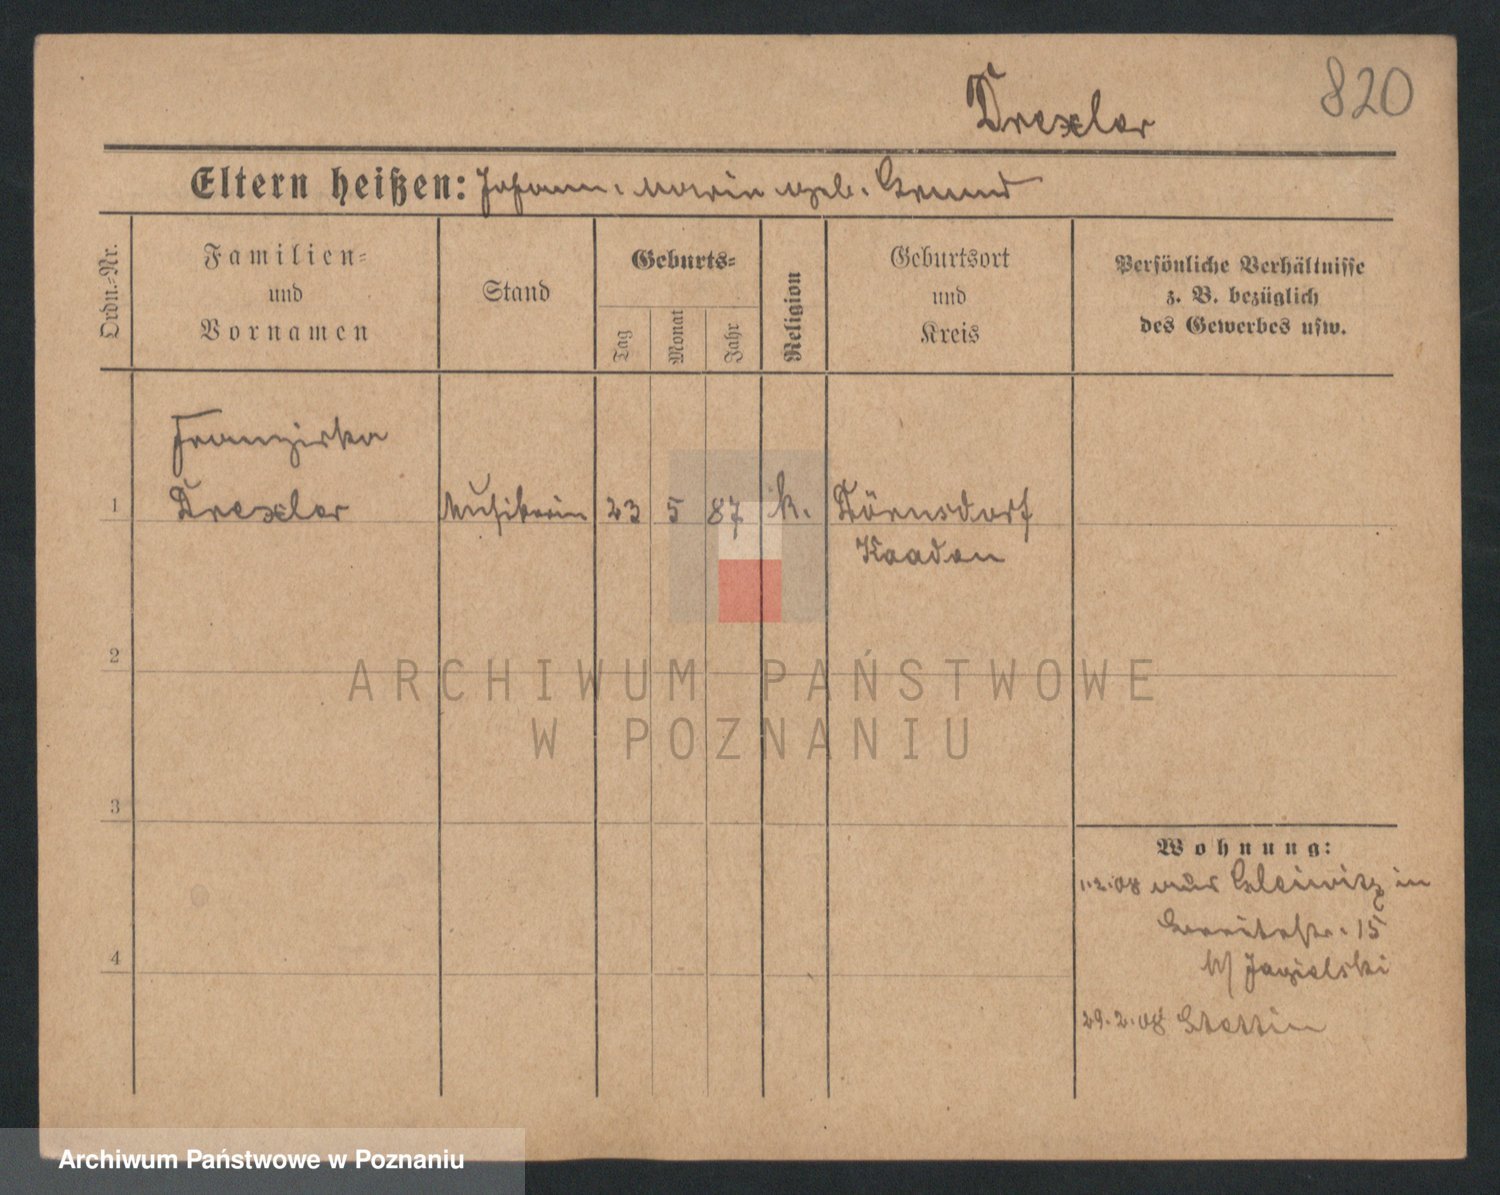 820
Drexler
Eltern heißen: Johann. Maria geb. Grund
Ordn.-Nr.
Familien-
und
Vornamen
Stand
Geburts-
Tag
Monat
Jahr
Religion
Geburtsort
und
Kreis
Persönliche Verhältnisse
z. B. bezüglich
des Gewerbes usw.
Franziska
1 Drexler Musikerin 23 5 87 k. Dörnsdorf
Kaaden
2
ARCHIWUM PAŃSTWOWE
W POZNANIU
3
Wohnung:
1.2.08 aus Gleiwitz in
Breitestr. 15
b/ Jagielski
4
29.2.08 Stettin
Archiwum Państwowe w Poznaniu